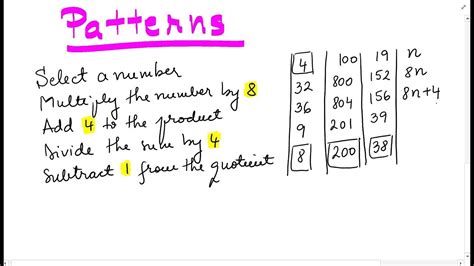 Patterns
Select a number 4 100 19 n
Multiply the number by 8 32 800 152 8n
Add 4 to the product 36 804 156 8n+4
Divide the sum by 4 9 201 39
Subtract 1 from the quotient 8 200 38